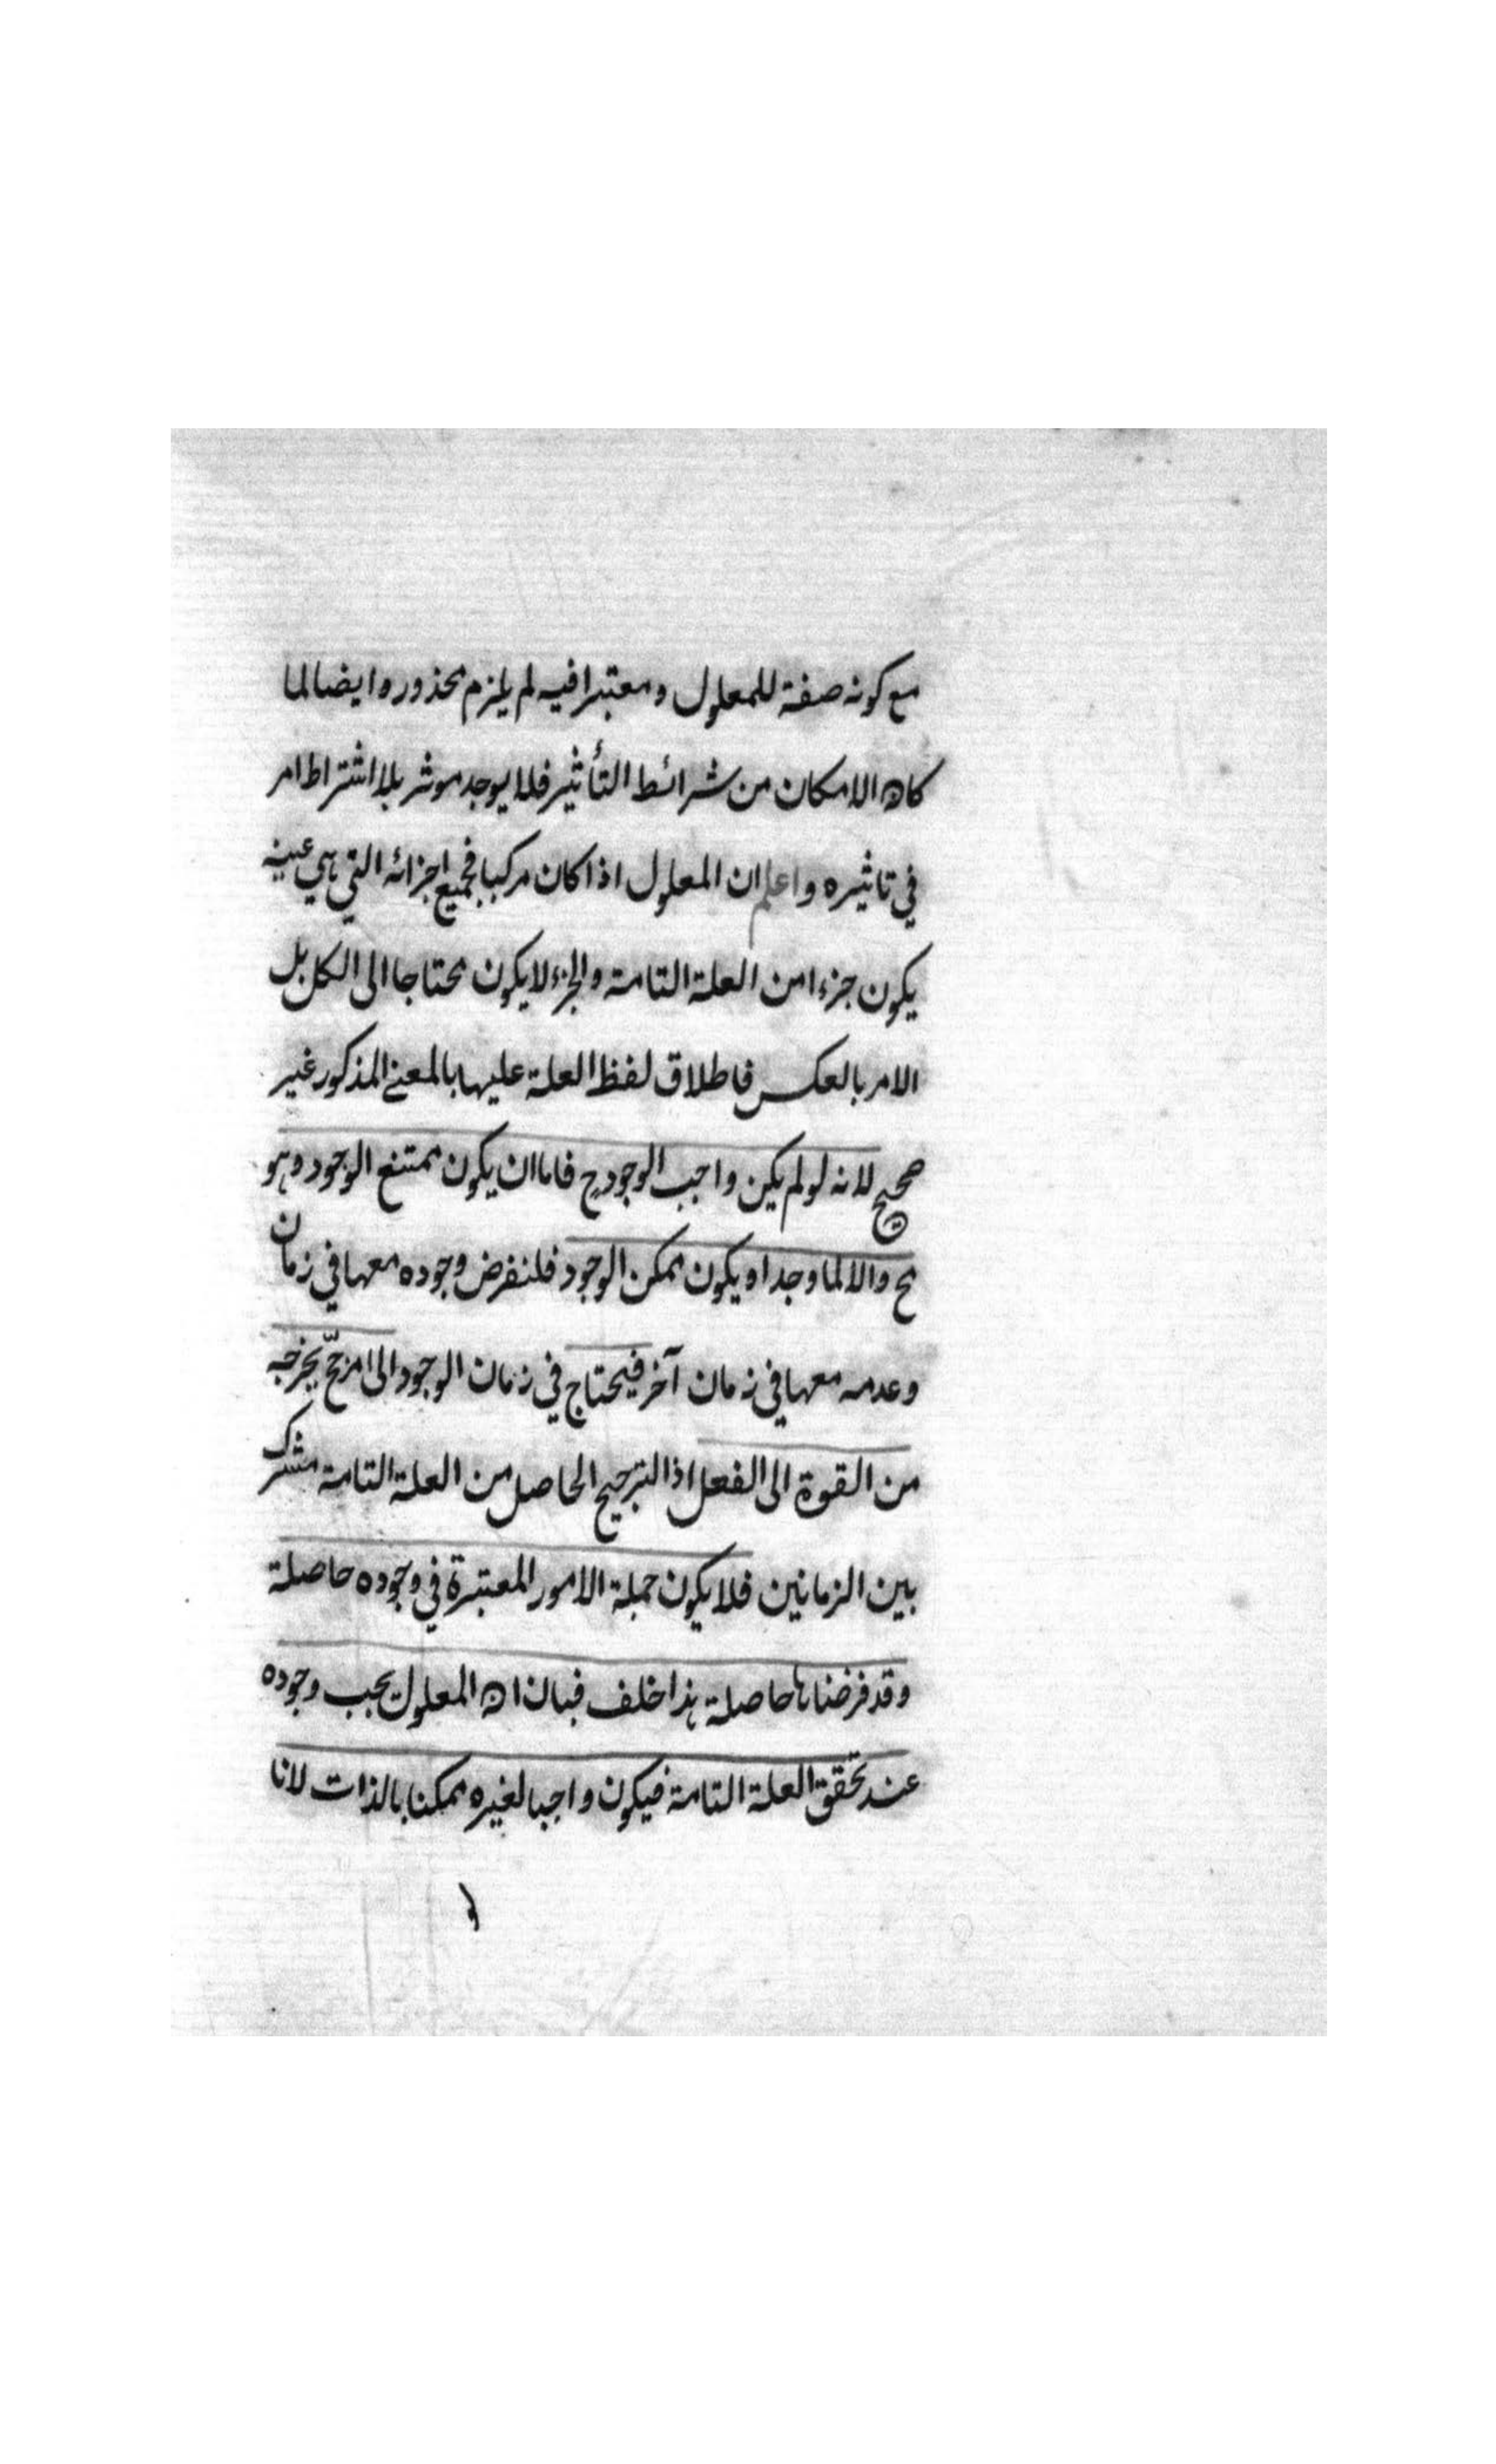 مع كونه صفة للمعلول ومعتبرا فيه لم يلزم محذور وايضا لما
كان الامكان من شرائط التأثير فلا يوجد موثر بلا اشتراط امر
في تاثيره واعلم ان المعلول اذا كان مركبا فجميع اجزائه التي هي عينه
يكون جزءا من العلة التامة والجزء لا يكون محتاجا الى الكل بل
الامر بالعكس فاطلاق لفظ العلة عليها بالمعنى المذكور غير
صحيح لانه لو لم يكن واجب الوجود ح فاما ان يكون ممتنع الوجود وهو
مح والا لما وجد او يكون ممكن الوجود فلنفرض وجوده معها في زمان
وعدمه معها في زمان آخر فيحتاج في زمان الوجود الى مرجّح يخرجه
من القوة الى الفعل اذ الترجيح الحاصل من العلة التامة مشترك
بين الزمانين فلا يكون جملة الامور المعتبرة في وجوده حاصلة
وقد فرضناها حاصلة هذا خلف فبان ان المعلول يجب وجوده
عند تحقق العلة التامة فيكون واجبا لغيره ممكنا بالذات لانا